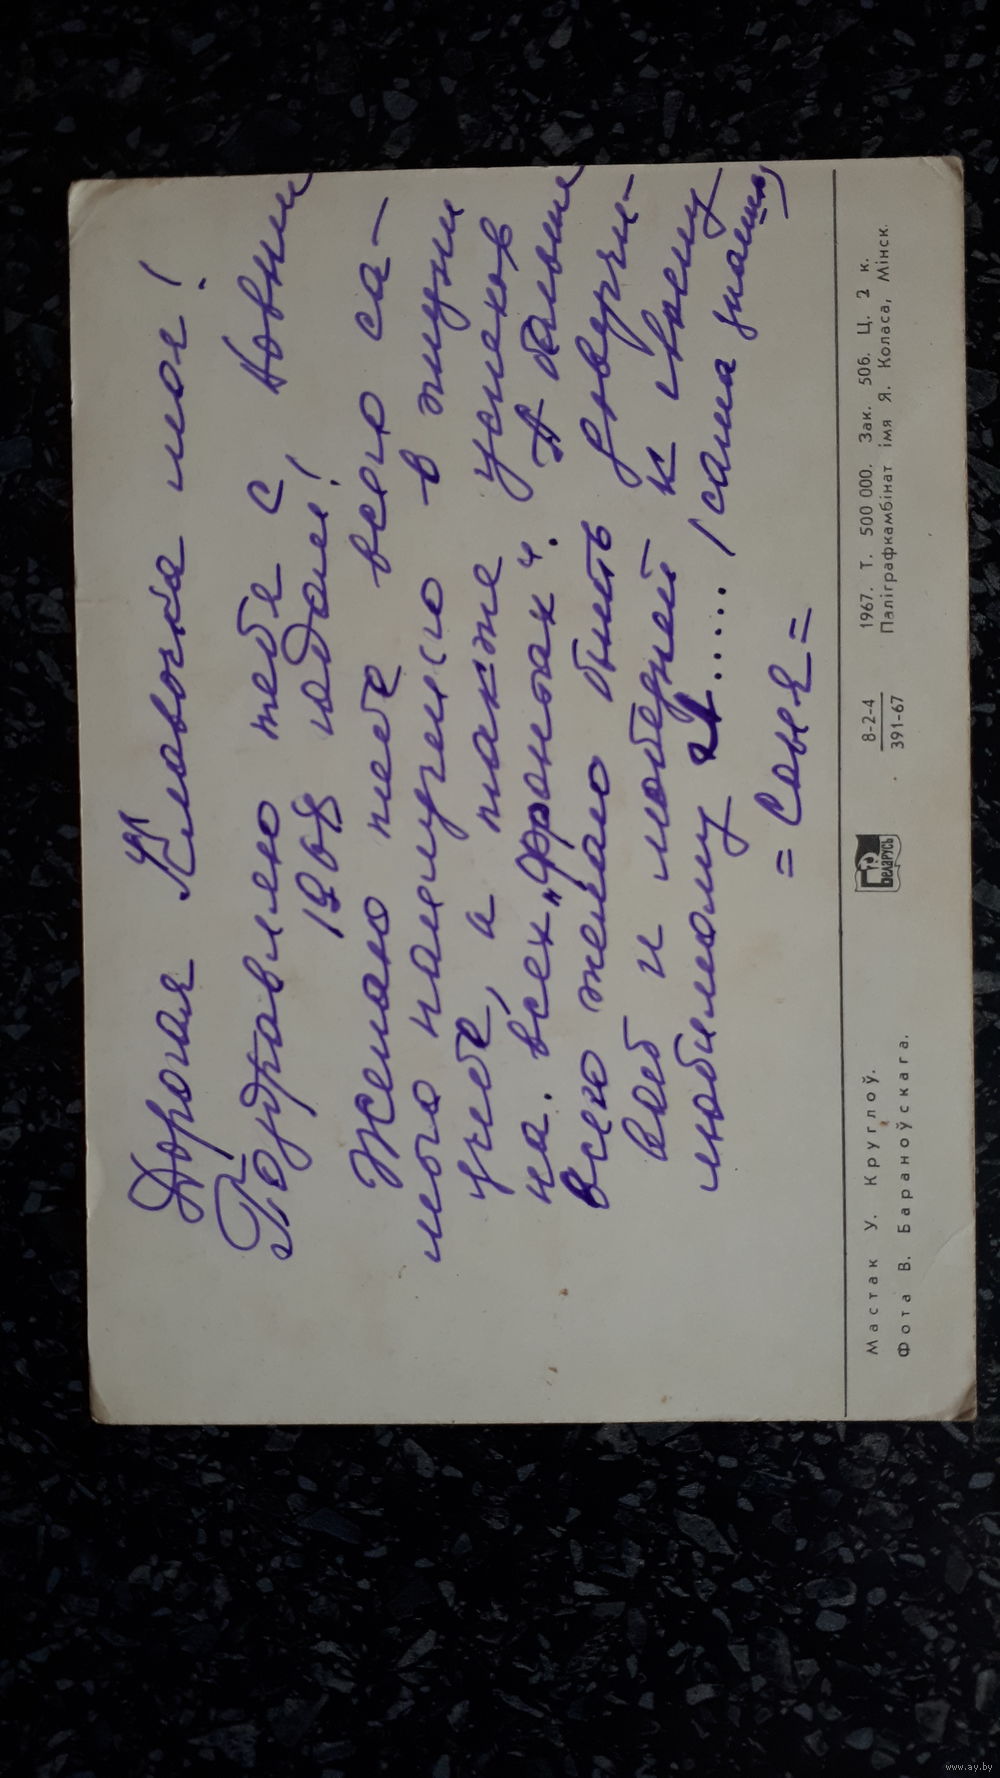 Дорогая Клавочка моя!
Поздравляю тебя с Новым
1968 годом!
Желаю тебе всего са-
мого наилучшего в жизни
учебе, а также успехов
на всех „фронтах“. А больше
всего желаю быть
и любимому
..... /сама знаешь/
= Соня =
Мастак У. Круглоў.
Фота В. Бараноўскага.
Беларусь
8-2-4
391-67
1967. Т. 500 000. Зак. 506. Ц. 2 к.
Паліграфкамбінат імя Я. Коласа, Мінск.
www.ay.by